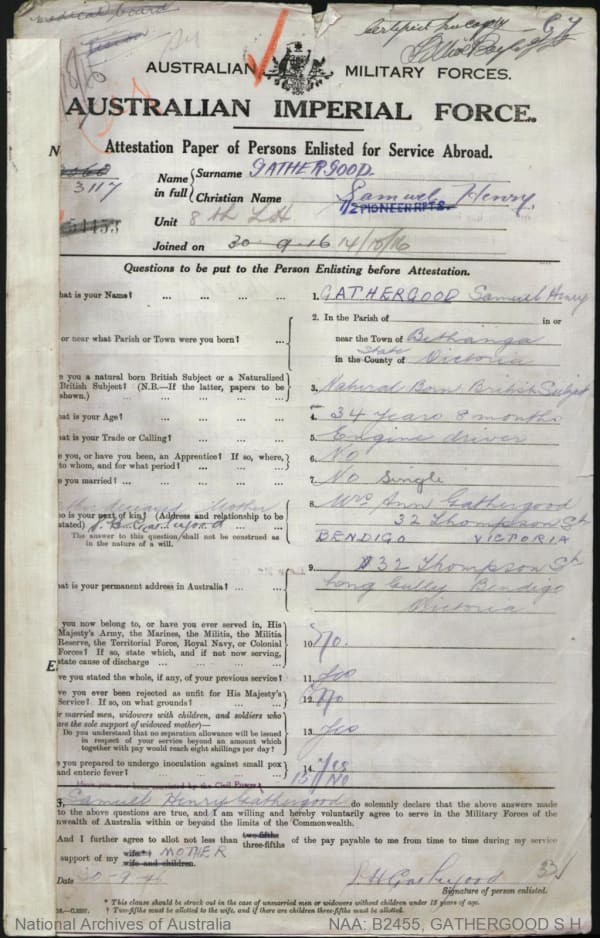 medical board
Certified true copy
AUSTRALIAN MILITARY FORCES.
AUSTRALIAN IMPERIAL FORCE.
N Attestation Paper of Persons Enlisted for Service Abroad.
3117
Name in full { Surname GATHERGOOD.
Christian Name Samuel Henry.
1/2 PIONEER RFTS.
Unit 8th LH
Joined on 30-9-16 14/10/16
Questions to be put to the Person Enlisting before Attestation.
hat is your Name? ... ... ... ... 1. GATHERGOOD Samuel Henry
2. In the Parish of in or
or near what Parish or Town were you born? ... near the Town of Bethanga
State
in the County of Victoria
e you a natural born British Subject or a Naturalized
British Subject? (N.B.—If the latter, papers to be
shown.) ... ... ... ... 3. Natural Born British Subject
hat is your Age? ... ... ... ... 4. 34 years 8 months
hat is your Trade or Calling? ... ... ... 5. Engine driver
e you, or have you been, an Apprentice? If so, where,
to whom, and for what period? ... ... ... 6. No
e you married? ... ... ... ... 7. No Single
Mother
o is your next of kin? (Address and relationship to be
stated) ... ... ...
The answer to this question shall not be construed as
in the nature of a will.
8. Mrs Ann Gathergood
32 Thompson St
BENDIGO VICTORIA
hat is your permanent address in Australia? ... ... 9. 32 Thompson St
Long Gully Bendigo
Victoria
you now belong to, or have you ever served in, His
Majesty's Army, the Marines, the Militia, the Militia
Reserve, the Territorial Force, Royal Navy, or Colonial
Forces? If so, state which, and if not now serving,
state cause of discharge ... ... ... 10. No.
E
ve you stated the whole, if any, of your previous service? 11. yes
ve you ever been rejected as unfit for His Majesty's
Service? If so, on what grounds? ... ... ... 12. No
r married men, widowers with children, and soldiers who
are the sole support of widowed mother)—
Do you understand that no separation allowance will be issued
in respect of your service beyond an amount which
together with pay would reach eight shillings per day? 13. yes
e you prepared to undergo inoculation against small pox
and enteric fever? ... ... ... ... 14. Yes
Have you ever been convicted by the Civil Power? 15 No
3, Samuel Henry Gathergood do solemnly declare that the above answers made
to the above questions are true, and I am willing and hereby voluntarily agree to serve in the Military Forces of the
nwealth of Australia within or beyond the limits of the Commonwealth.
And I further agree to allot not less than two-fifths three-fifths of the pay payable to me from time to time during my service
support of my wife* MOTHER
wife and children.
Date 30-9-16 S H Gathergood 33
Signature of person enlisted.
* This clause should be struck out in the case of unmarried men or widowers without children under 18 years of age.
† Two-fifths must be allotted to the wife, and if there are children three-fifths must be allotted.
National Archives of Australia NAA: B2455, GATHERGOOD S H